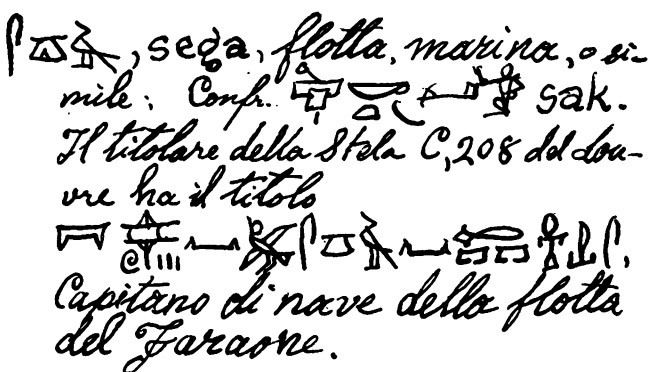 , sega, flotta, marina, o si-
mile; Confr. sak.
Il titolare della Stela C, 208 del Lou-
vre ha il titolo
Capitano di nave della flotta
del Faraone.